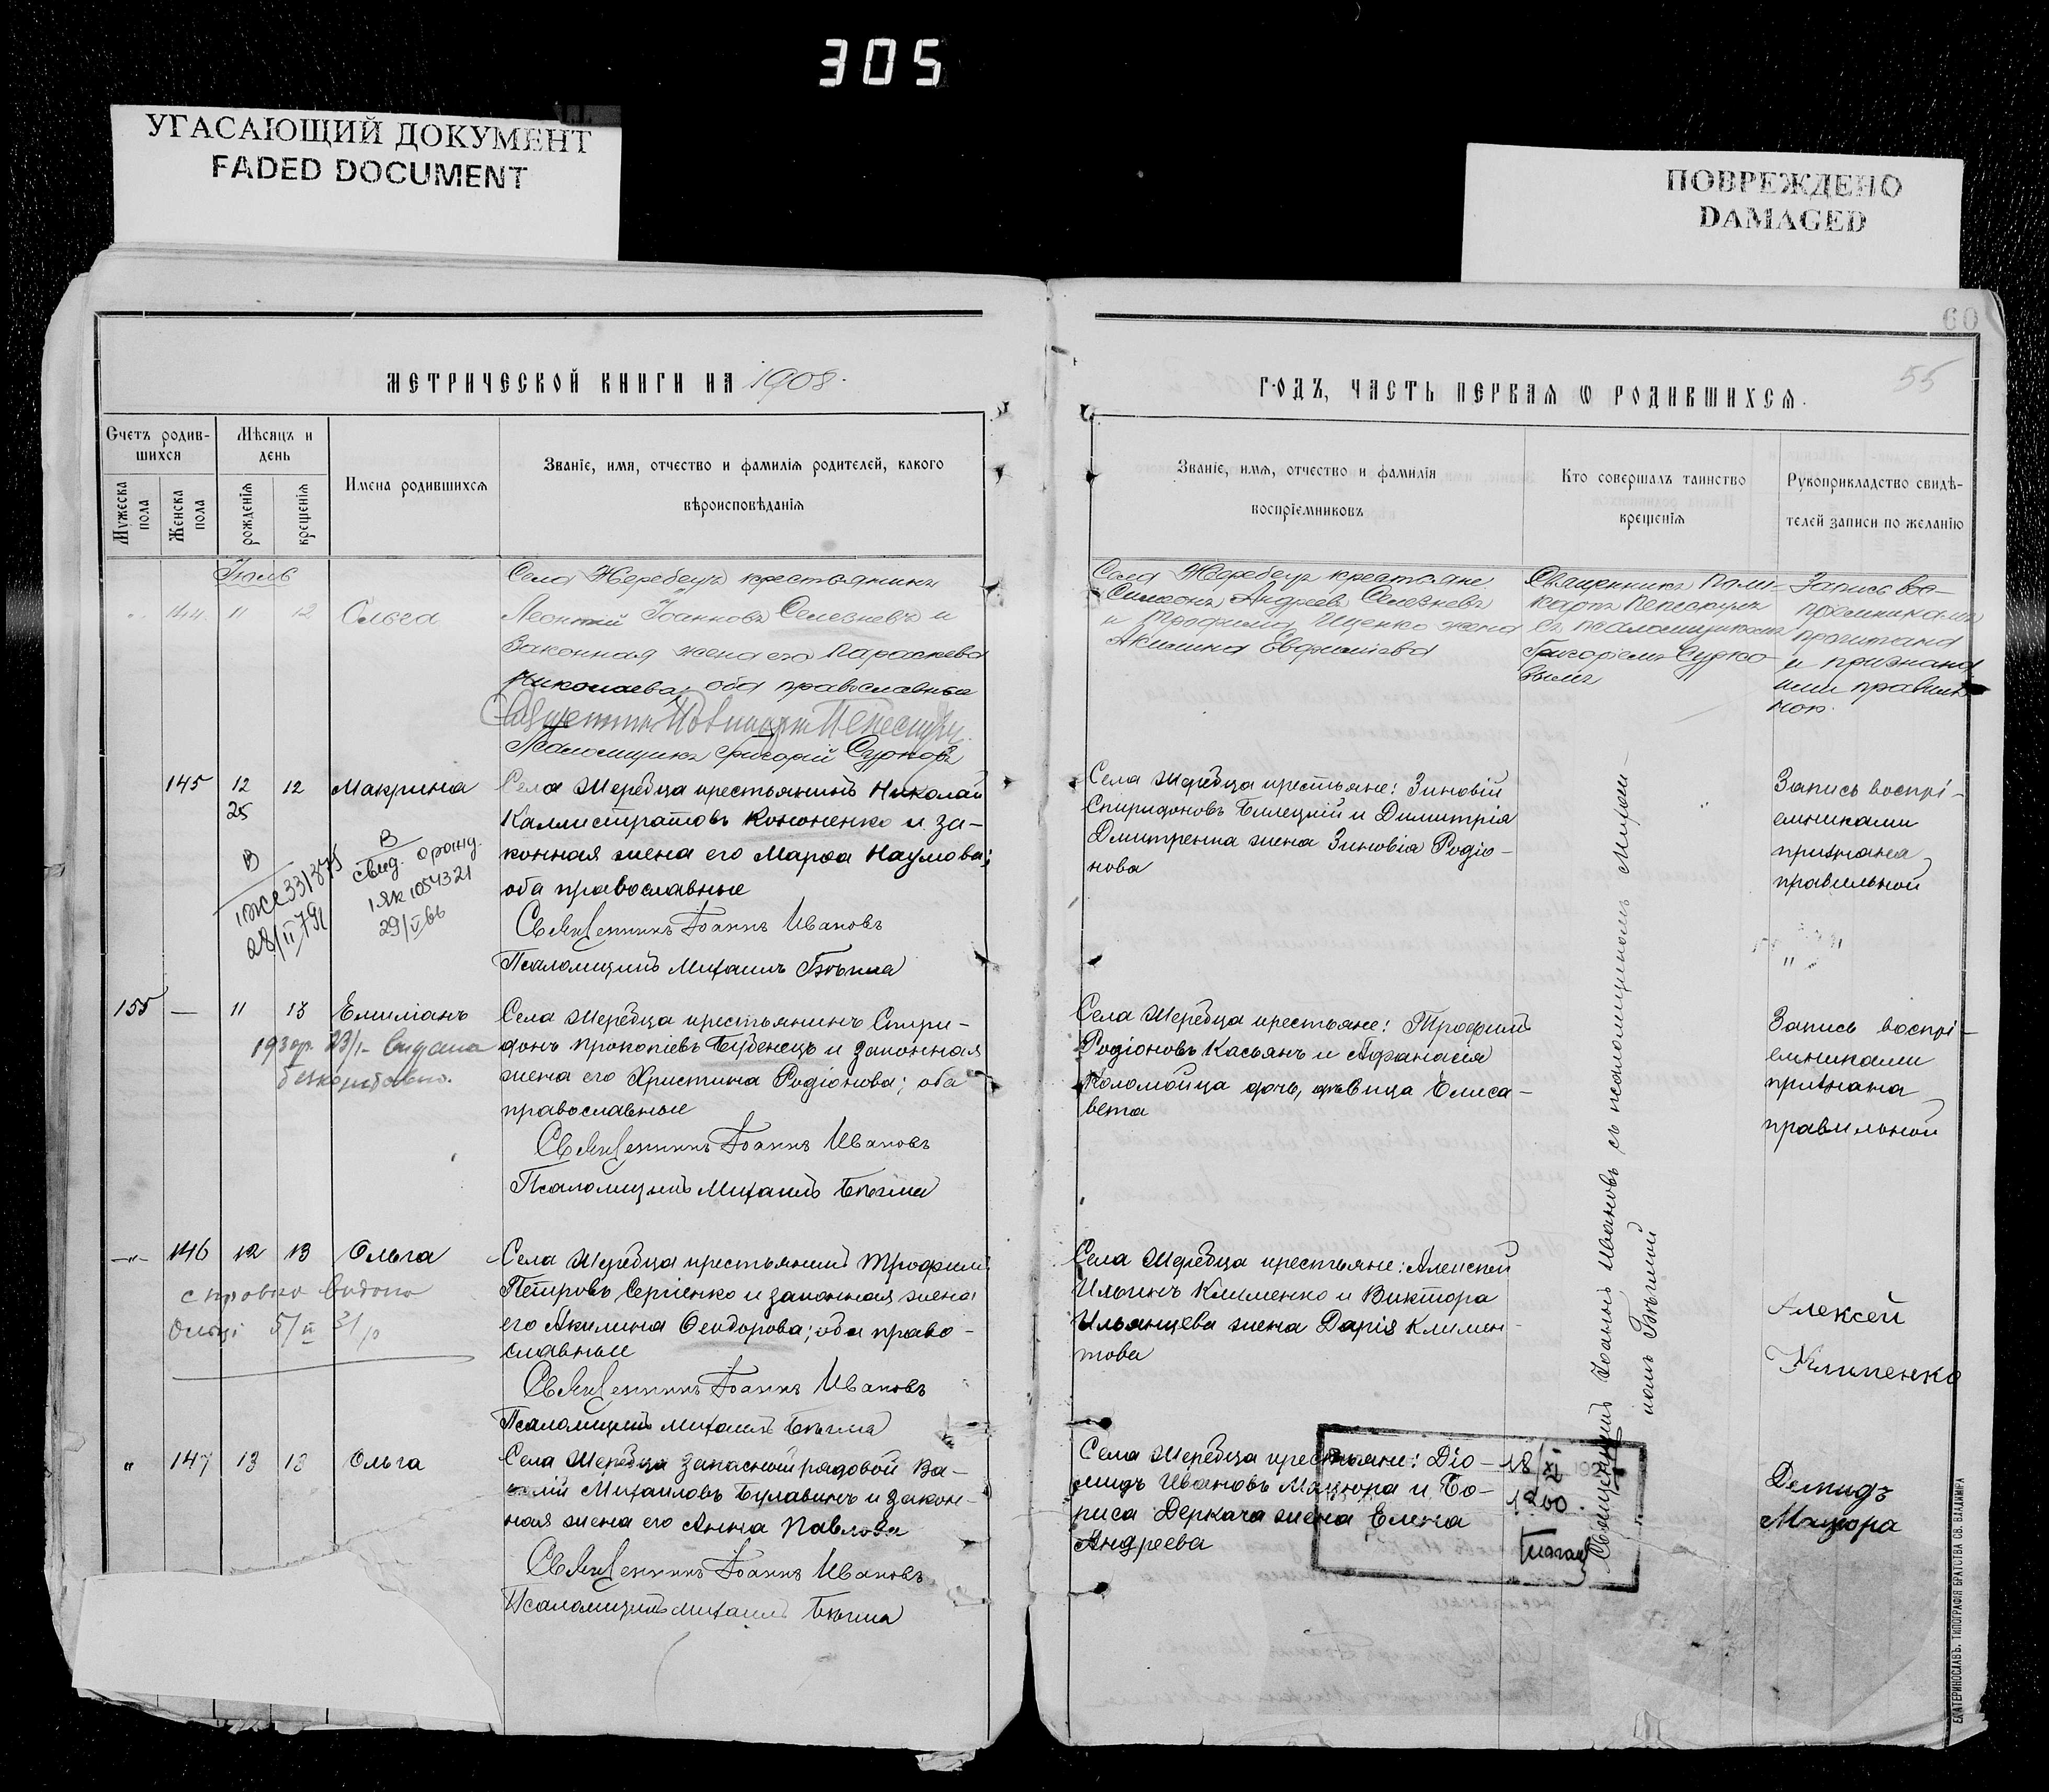 305
УГАСАЮЩИЙ ДОКУМЕНТ
FADED DOCUMENT
ПОВРЕЖДЕНО
DAMAGED
60
55
МЕТРИЧЕСКОЙ КНИГИ НА 1908.
ГОДЪ, ЧАСТЬ ПЕРВАЯ Ѡ РОДИВШИХСЯ.
Счетъ родив-
шихся
Мѣсяцъ и
день
Мужеска
пола
Женска
пола
рожденія
крещенія
Имена родившихся
Званіе, имя, отчество и фамилія родителей, какого
вѣроисповѣданія
Званіе, имя, отчество и фамилія
воспріемниковъ
Кто совершалъ таинство
крещенія
Рукоприкладство свидѣ-
телей записи по желанію
Іюль
144 11 12 Ольга
Села Жеребецъ крестьянинъ
Леонтій Іоанновъ Селезневъ и
законная жена его Параскева
Николаева, оба православные
Священникъ Поликарпъ Пепескулъ
Псаломщикъ Григорій Сурковъ
Села Жеребецъ крестьяне
Симеонъ Андреевъ Селезневъ
и Трофима Ищенко жена
Акилина Евфиміева
Священникъ Поли-
карпъ Пепескулъ
съ псаломщикомъ
Григоріемъ Сурко-
вымъ
Запись вос-
пріемниками
прочитана
и признана
ими правиль-
ною.
145 12 12 Макрина
25
Села Жеребца крестьянинъ Николай
Каллистратовъ Кононенко и за-
конная жена его Марѳа Наумова;
оба православные
Священникъ Іоаннъ Ивановъ
Псаломщикъ Михаилъ Бѣгма
В
331375
28/II 79
В
свид.
1ЯК 1054321
29/
Села Жеребца крестьяне: Зиновій
Спиридоновъ Билецкій и Димитрія
Дмитренка жена Зиновія Родіо-
нова
Запись воспрі-
емниками
признана
правильной
155 — 11 13 Емиліанъ
193 р. 23/I- видана
безкоштовно.
Села Жеребца крестьянинъ Спири-
донъ Прокопіевъ Бубенецъ и законная
жена его Христина Родіонова; оба
православные
Священникъ Іоаннъ Ивановъ
Псаломщикъ Михаилъ Бѣгма
Села Жеребца крестьяне: Трофимъ
Родіоновъ Касьянъ и Аѳанасія
Коломойца дочь, дѣвица Елиса-
вета
Запись воспрі-
емниками
признана
правильной
—"— 146 12 13 Ольга
справка видана
Ользі 5/II 31 р
Села Жеребца крестьянинъ Трофимъ
Петровъ Сергіенко и законная жена
его Акилина Ѳеодорова; оба право-
славные
Священникъ Іоаннъ Ивановъ
Псаломщикъ Михаилъ Бѣгма
Села Жеребца крестьяне: Алексѣй
Ильинъ Клименко и Виктора
Ильяшева жена Дарія Климен-
това
Алексей
Клименко
" 147 13 13 Ольга
Села Жеребца запасной рядовой Ва-
силій Михаиловъ Булавинъ и закон-
ная жена его Анна Павлова
Священникъ Іоаннъ Ивановъ
Псаломщикъ Михаилъ Бѣгма
Села Жеребца крестьяне: Діо-
мидъ Ивановъ Мацюра и Бо-
риса Деркача жена Елена
Андреева
18/XI 192
1200
Демидъ
Мацюра
Священникъ Іоаннъ Ивановъ съ псаломщикомъ Михаи-
ломъ Бѣгмой
ЕКАТЕРИНОСЛАВЪ. ТИПОГРАФІЯ БРАТСТВА СВ. ВЛАДИМІРА